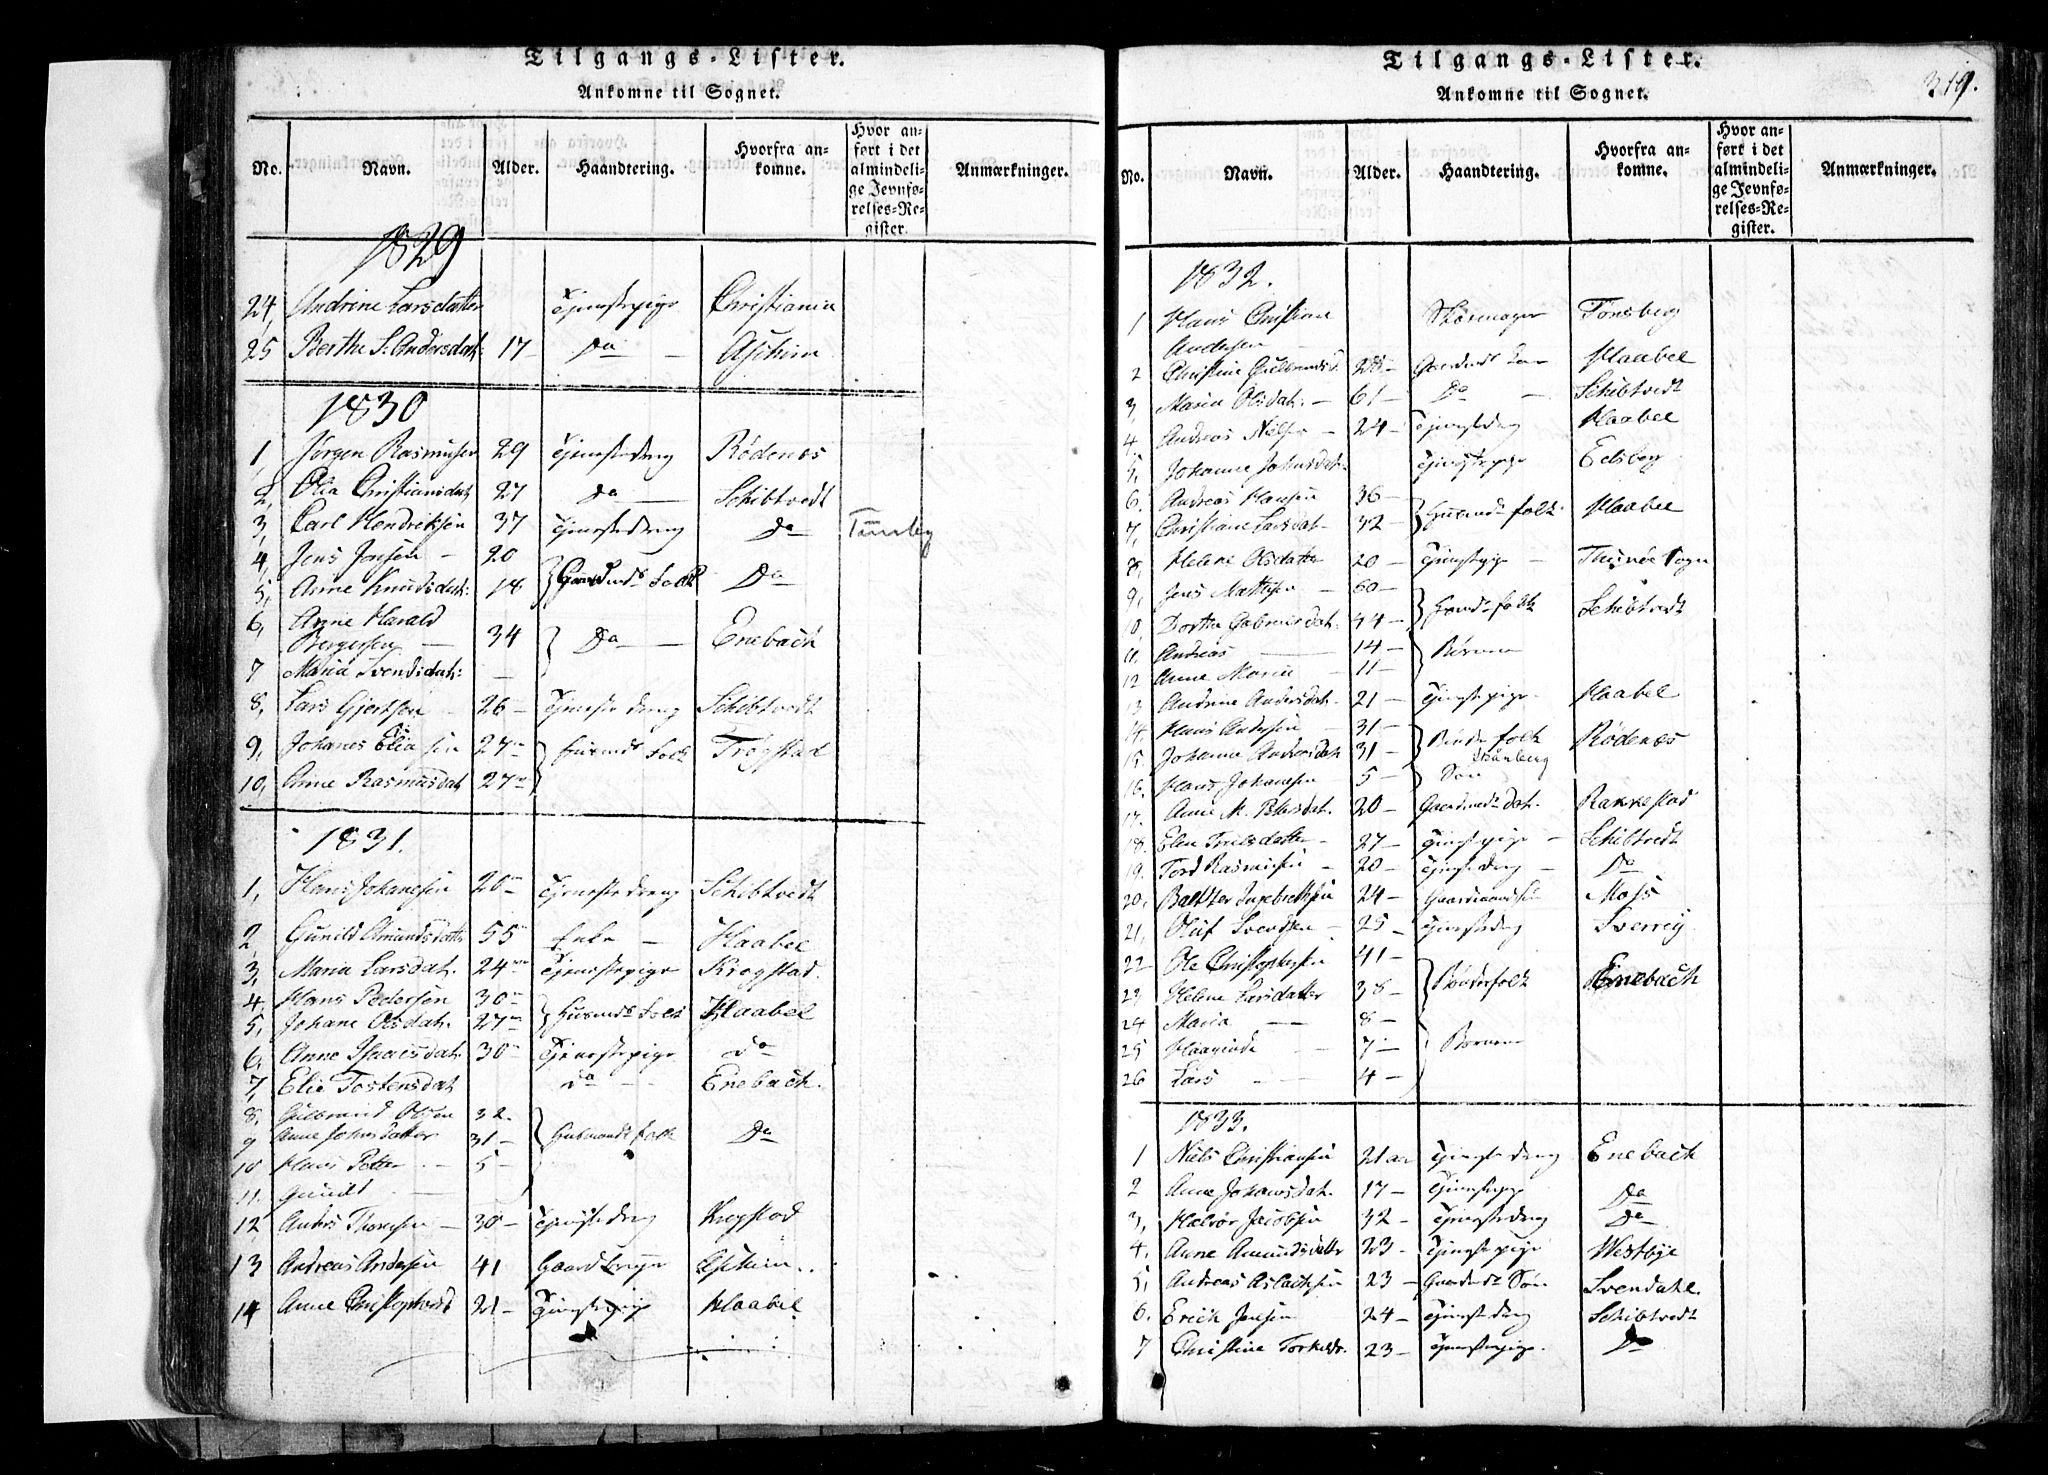 Tilgangs-Lister.
Ankomne til Sognet.
No. Navn. Alder. Haandtering. Hvorfra ankomne. Hvor anført i det almindelige Jevnførelses-Register. Anmærkninger.
1829
24, Andrine Larsdatter Tjenestepige Christiania
25 Berthe S. Andersdat: 17 Do Aschim
1830
1, Jørgen Rasmusen 29 Tjenestedreng Rødenes
2, Olia Christiansdat 27 Do Schibtvedt
3, Carl Hendriksen 37 Tjenestedreng Do
4, Jens Jensen 20
5, Anne Knudsdat: 18 Gaardmds Folk Do
6, Arne Harald
Bergersen 34 Do Enebach
7 Maria Svendsdat:
8, Lars Gjertsen 26 Tjenestedreng Schibtvedt
9, Johanes Eliasen 27 Huusmds Folk Trøgstad
10, Anne Rasmusdat 27
1831.
1, Hans Johanesen 20 Tjenestedreng Schibtvedt
2, Gunild Amundsdatter 55 Enke Haabel
3, Maria Larsdat. 24 Tjenestepige Krogstad.
4, Hans Pedersen 30
5, Johane Olsdat. 27 Huusmds Folk Haabel
6, Anne Isaacsdat. 30 Tjenestepige do
7, Elie Tostensdat do Enebach.
8, Gulbrand Olsen 32
9 Anne Johnsdatter 31 Husmands folk Do
10 Hans Petter 5
11. Gunild
12 Anders Thoresen 30 Tjenstedreng Krogstad
13 Andreas Andersen 41 Gaardbruger Aschim
14 Anne Christophersd 21 Tjenstepige Haabel
Tilgangs-Lister.
Ankomne til Sognet.
319.
No. Navn. Alder. Haandtering. Hvorfra ankomne. Hvor anført i det almindelige Jevnførelses-Register. Anmærkninger.
1832.
1 Hans Christian Skoemager Tønsberg
Andersen
2 Christine Gulbrandsd. 28 Haabel
3, Maria Olsdat. 61 Do Schibtvedt
4 Andreas Nilsen 24 Tjenstedreng Haabel
5, Johanne Johnsdat. Tjenstepige Edsberg
6. Andreas Hansen 36
7, Christiane Larsdat 32 Huusmds folk Haabel
8, Helene Olsdatter 20 Tjenstepige Sogn
9, Jens Mathisen 60
10, Dorthe Gabrielsdat. 44 Gaardmds folk Schibtvedt
11, Andreas 14 Børnene
12 Anne Maria 11
13 Andrine Andersdat. 21 Tjenstepige Haabel
14. Hans Andersen 31
15 Johanna Andersdat 31 Bønder folk Rødenes
16. Hans Johansen 5 Søn
17. Anne M. Pedersdat. 20 Gaardmds dat. Rakkestad
18. Elen Truelsdatter 27 Tjenstepige Schibtvedt
19. Tord Rasmusen 20 Tjenstedreng Do
20, Balthzer Ingebretsen 24 Gaardmandssøn Moss
21, Oluf Svendsen 25 Tjenstedreng Sverrig
22 Ole Christophersen 41
23 Helene Larsdatter 38 Bønderfolk Enebach
24 Maria 8
25 7 Børnene
26 Lars 4
1833.
1 Niels Christiansen 21 aar Tjenstedreng Enebach
2 Anne Johansdat. 17 Tjenstepige Do
3, Halvor Jacobsen 32 Tjenstedreng Do
4. Anne Amundsdattr 23 Tjenstepige Westbye
5, Andreas Aslachsen 23 Gaardmds Søn Svendahl
6. Erich Jensen 24 Tjenstedreng Schibtvedt
7 Christine Torkelsd. 23 Tjenstepige Do